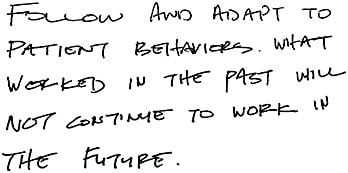 FOLLOW AND ADAPT TO
PATIENT BEHAVIORS. WHAT
WORKED IN THE PAST WILL
NOT CONTINUE TO WORK IN
THE FUTURE.